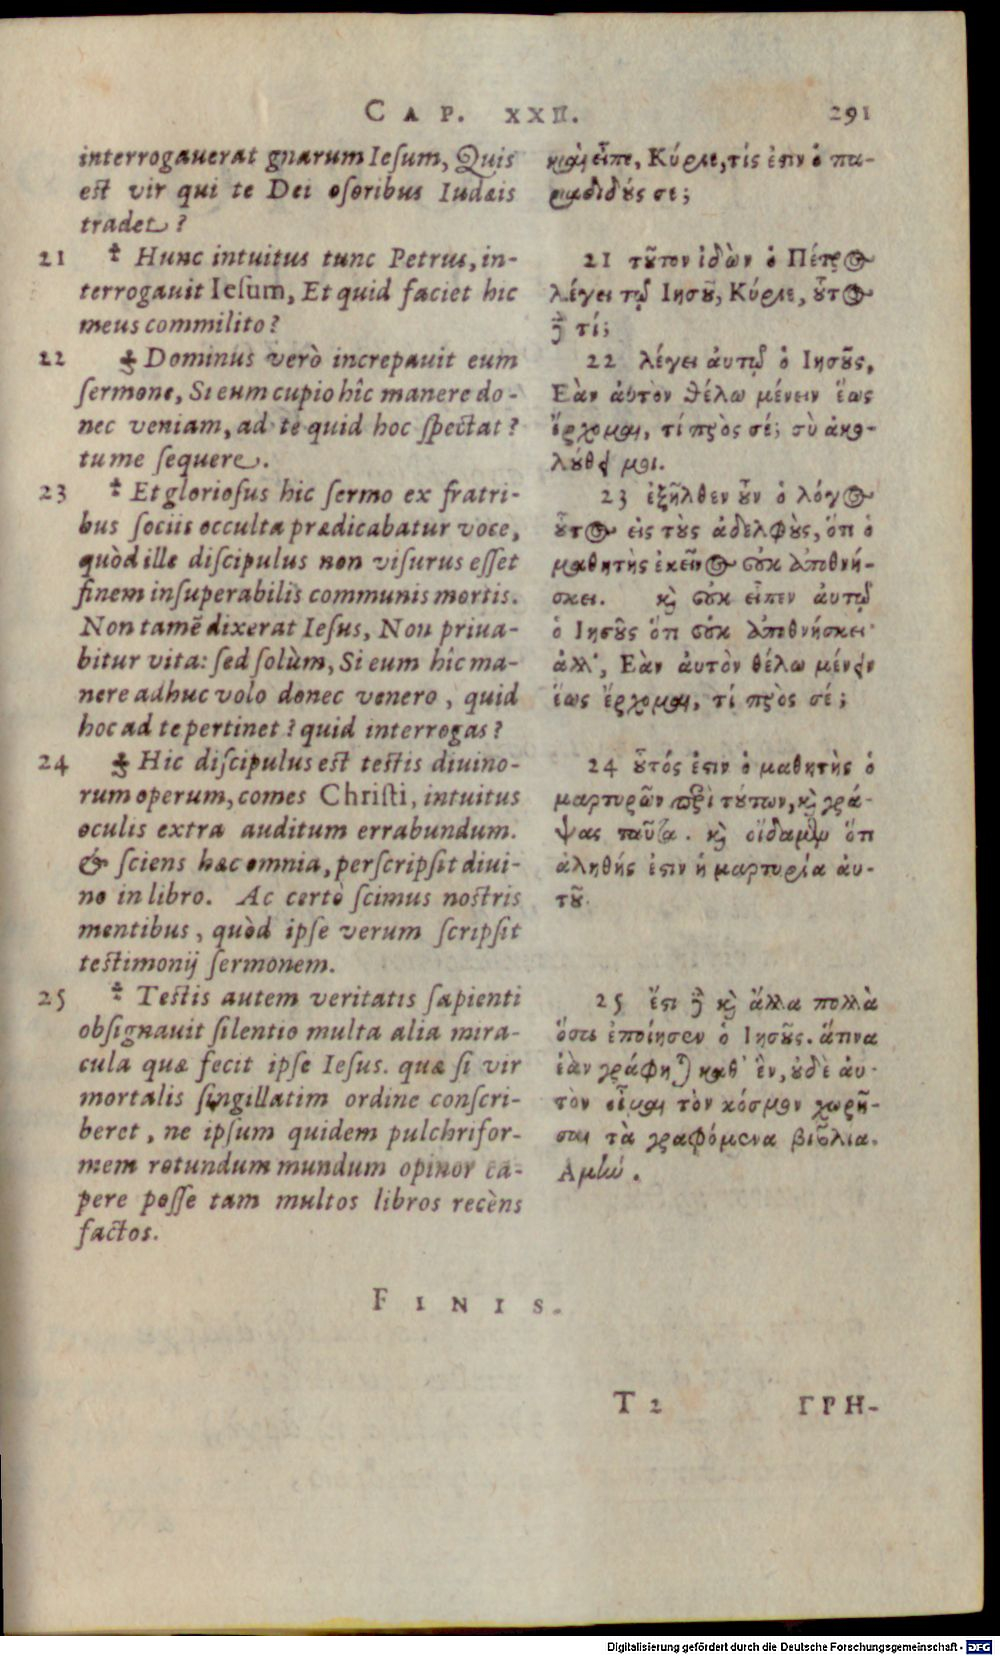 CAP. XXII. 291
interrogauerat gnarum Iesum, Quis
est vir qui te Dei osoribus Iudæis
tradet?
21 ÷ Hunc intuitus tunc Petrus, in-
terrogauit Iesum, Et quid faciet hic
meus commilito?
22 Dominus verò increpauit eum
sermone, Si eum cupio hîc manere do-
nec veniam, ad te quid hoc spectat?
tu me sequere.
23 ÷ Et gloriosus hic sermo ex fratri-
bus sociis occulta prædicabatur voce,
quòd ille discipulus non visurus esset
finem insuperabilis communis mortis.
Non tamē dixerat Iesus, Non priua-
bitur vita: sed solùm, Si eum hîc ma-
nere adhuc volo donec venero, quid
hoc ad te pertinet? quid interrogas?
24 Hic discipulus est testis diuino-
rum operum, comes Christi, intuitus
oculis extra auditum errabundum.
& sciens hæc omnia, perscripsit diui-
no in libro. Ac certè scimus nostris
mentibus, quòd ipse verum scripsit
testimonij sermonem.
25 ÷ Testis autem veritatis sapienti
obsignauit silentio multa alia mira-
cula quæ fecit ipse Iesus. quæ si vir
mortalis singillatim ordine conscri-
beret, ne ipsum quidem pulchrifor-
mem rotundum mundum opinor ca-
pere posse tam multos libros recèns
factos.
καὶ εἶπε, Κύριε, τίς ἐστιν ὁ πα-
ραδιδούς σε;
21 τοῦτον ἰδὼν ὁ Πέτρος
λέγει τῷ Ιησοῦ, Κύριε, οὗτος
δὲ τί;
22 λέγει αὐτῷ ὁ Ιησοῦς,
Εὰν αὐτὸν θέλω μένειν ἕως
ἔρχομαι, τί πρὸς σέ; σὺ ἀκο-
λούθει μοι.
23 ἐξῆλθεν οὖν ὁ λόγος
οὗτος εἰς τοὺς ἀδελφοὺς, ὅτι ὁ
μαθητὴς ἐκεῖνος οὐκ ἀποθνή-
σκει. καὶ οὐκ εἶπεν αὐτῷ
ὁ Ιησοῦς ὅτι οὐκ ἀποθνήσκει·
ἀλλ', Εὰν αὐτὸν θέλω μένειν
ἕως ἔρχομαι, τί πρὸς σέ;
24 οὗτός ἐστιν ὁ μαθητὴς ὁ
μαρτυρῶν περὶ τούτων, καὶ γρά-
ψας ταῦτα. καὶ οἴδαμεν ὅτι
ἀληθής ἐστιν ἡ μαρτυρία αὐ-
τοῦ.
25 ἔστι δὲ καὶ ἄλλα πολλὰ
ὅσα ἐποίησεν ὁ Ιησοῦς. ἅτινα
ἐὰν γράφηται καθ' ἓν, οὐδὲ αὐ-
τὸν οἶμαι τὸν κόσμον χωρῆ-
σαι τὰ γραφόμενα βιβλία.
Αμήν.
FINIS.
T 2 ΓΡΗ-
Digitalisierung gefördert durch die Deutsche Forschungsgemeinschaft - DFG